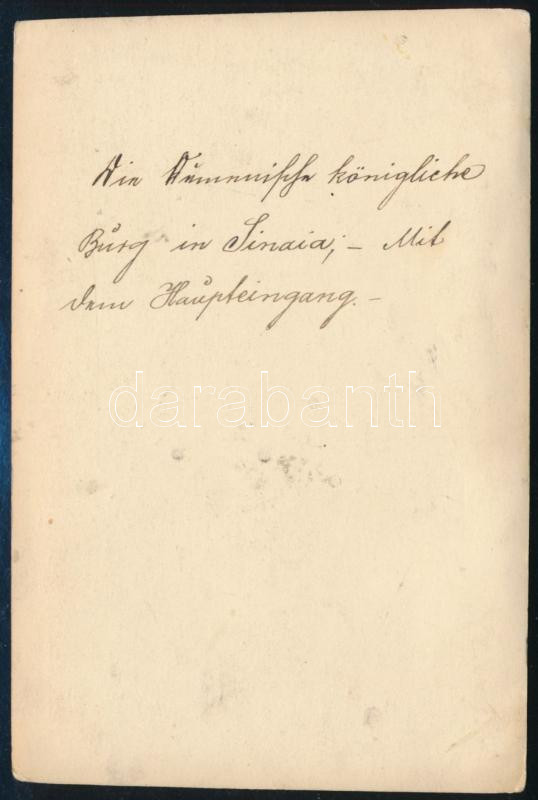 Die Rumenische königliche
Burg in Sinaia; – Mit
dem Haupteingang. –
darabanth